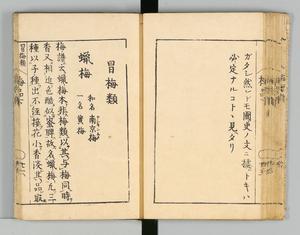 ガタシ然レドモ國史ノ文ニ據ルトキハ
必定ナルコトヽ見タリ
冒梅類
蠟梅
和名 南京梅
一名 黄梅
梅譜云蠟梅本非梅類以其與梅同時
香又相近色酷似蜜脾故名蠟梅凡三
種以子種出不經接花小香淡其品最